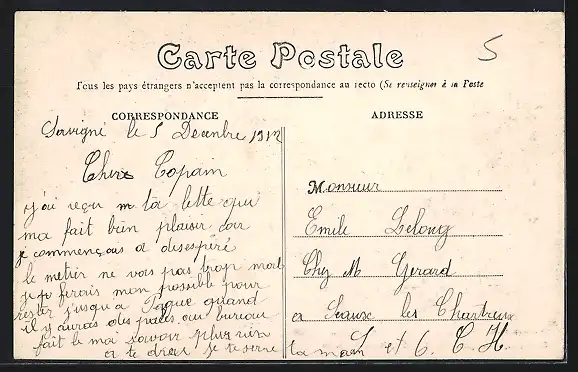 Carte Postale
5
Tous les pays étrangers n'acceptent pas la correspondance au recto (Se renseigner à la Poste
CORRESPONDANCE
ADRESSE
Savigné le 5 Decenbre 1912
Cher Copain
j'ai reçu ta lettre qui
ma fait bien plaisir car
je commençais a desespéré
le metier ne vois pas trop mal
je ferais mon possible pour
rester jusqu'a Paque quand
il y auras des places au bureau
fait le moi savoir plus rien
a te dire je te serre
la main
Monsieur
Emile Lelong
Chez M Gerard
a les Chartreux
et